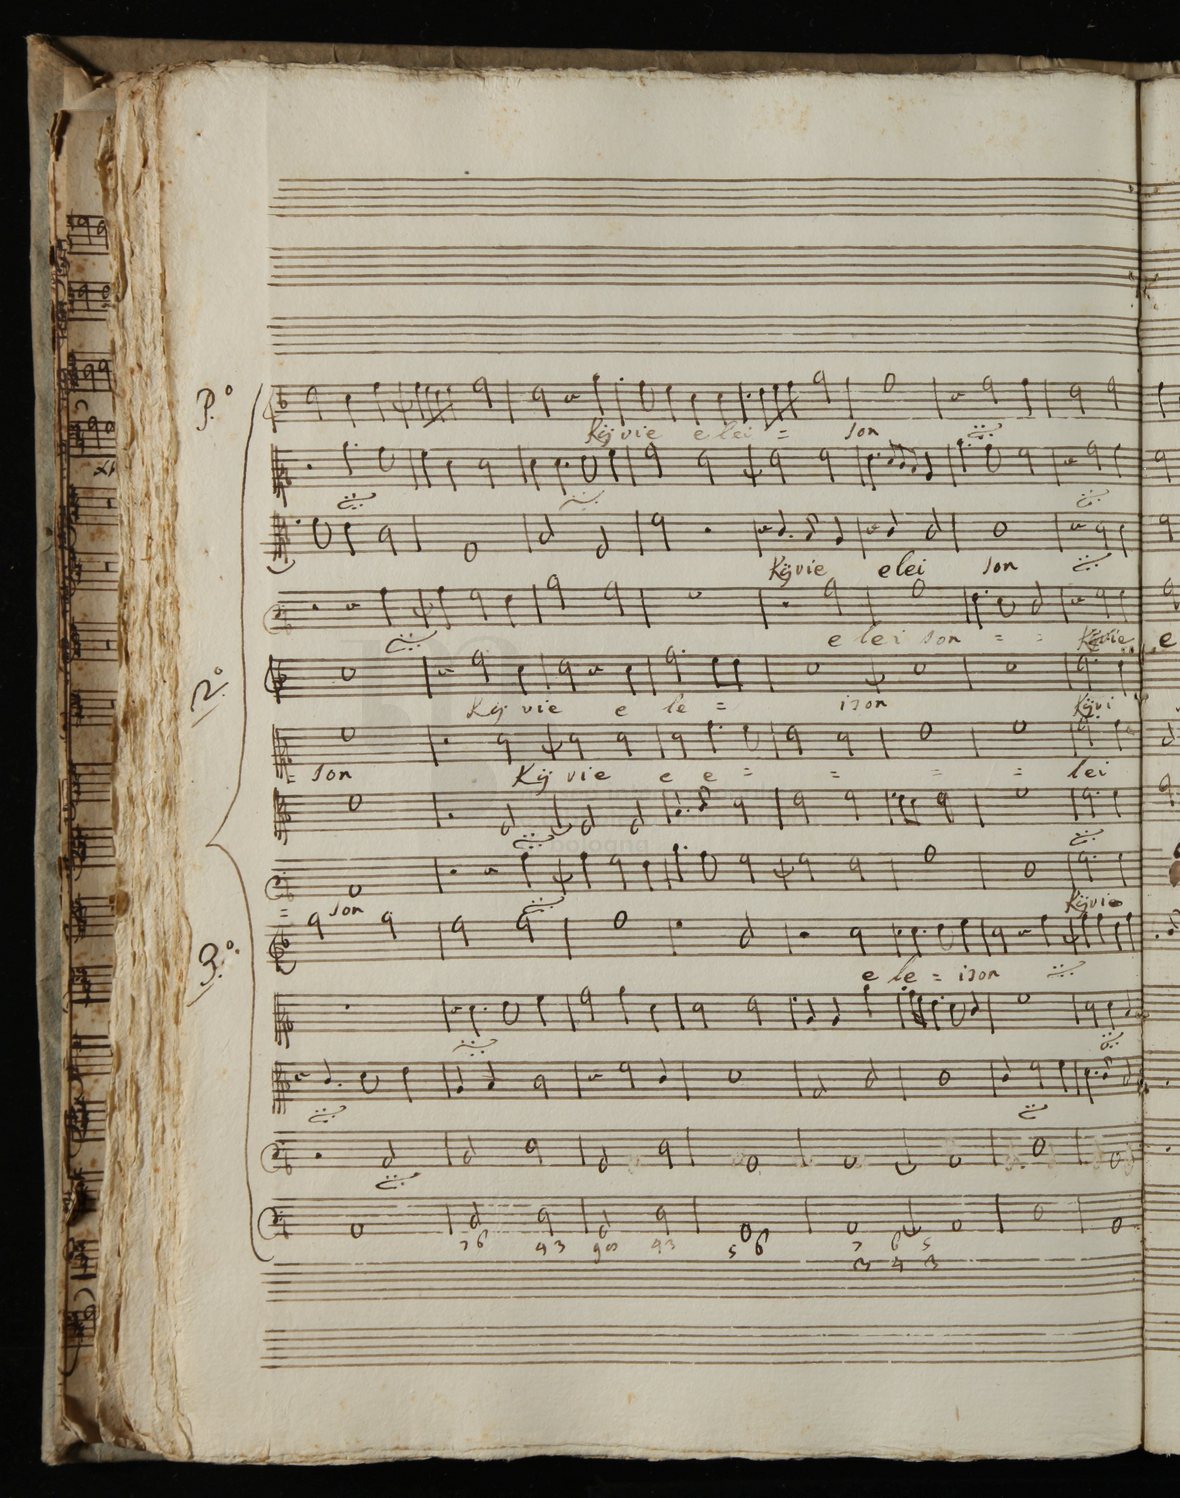 P.º
Kÿrie elei = son
Kÿrie elei son
e lei son = =
Kÿrie e
2.º
Kÿ rie e le = ison
Kÿri
= son Kÿ rie e e = = = = lei
= son
Kÿrie
3.º
e le = ison
7 6 4 3 9 8 4 3 5 6 7 6 5
3 4 3